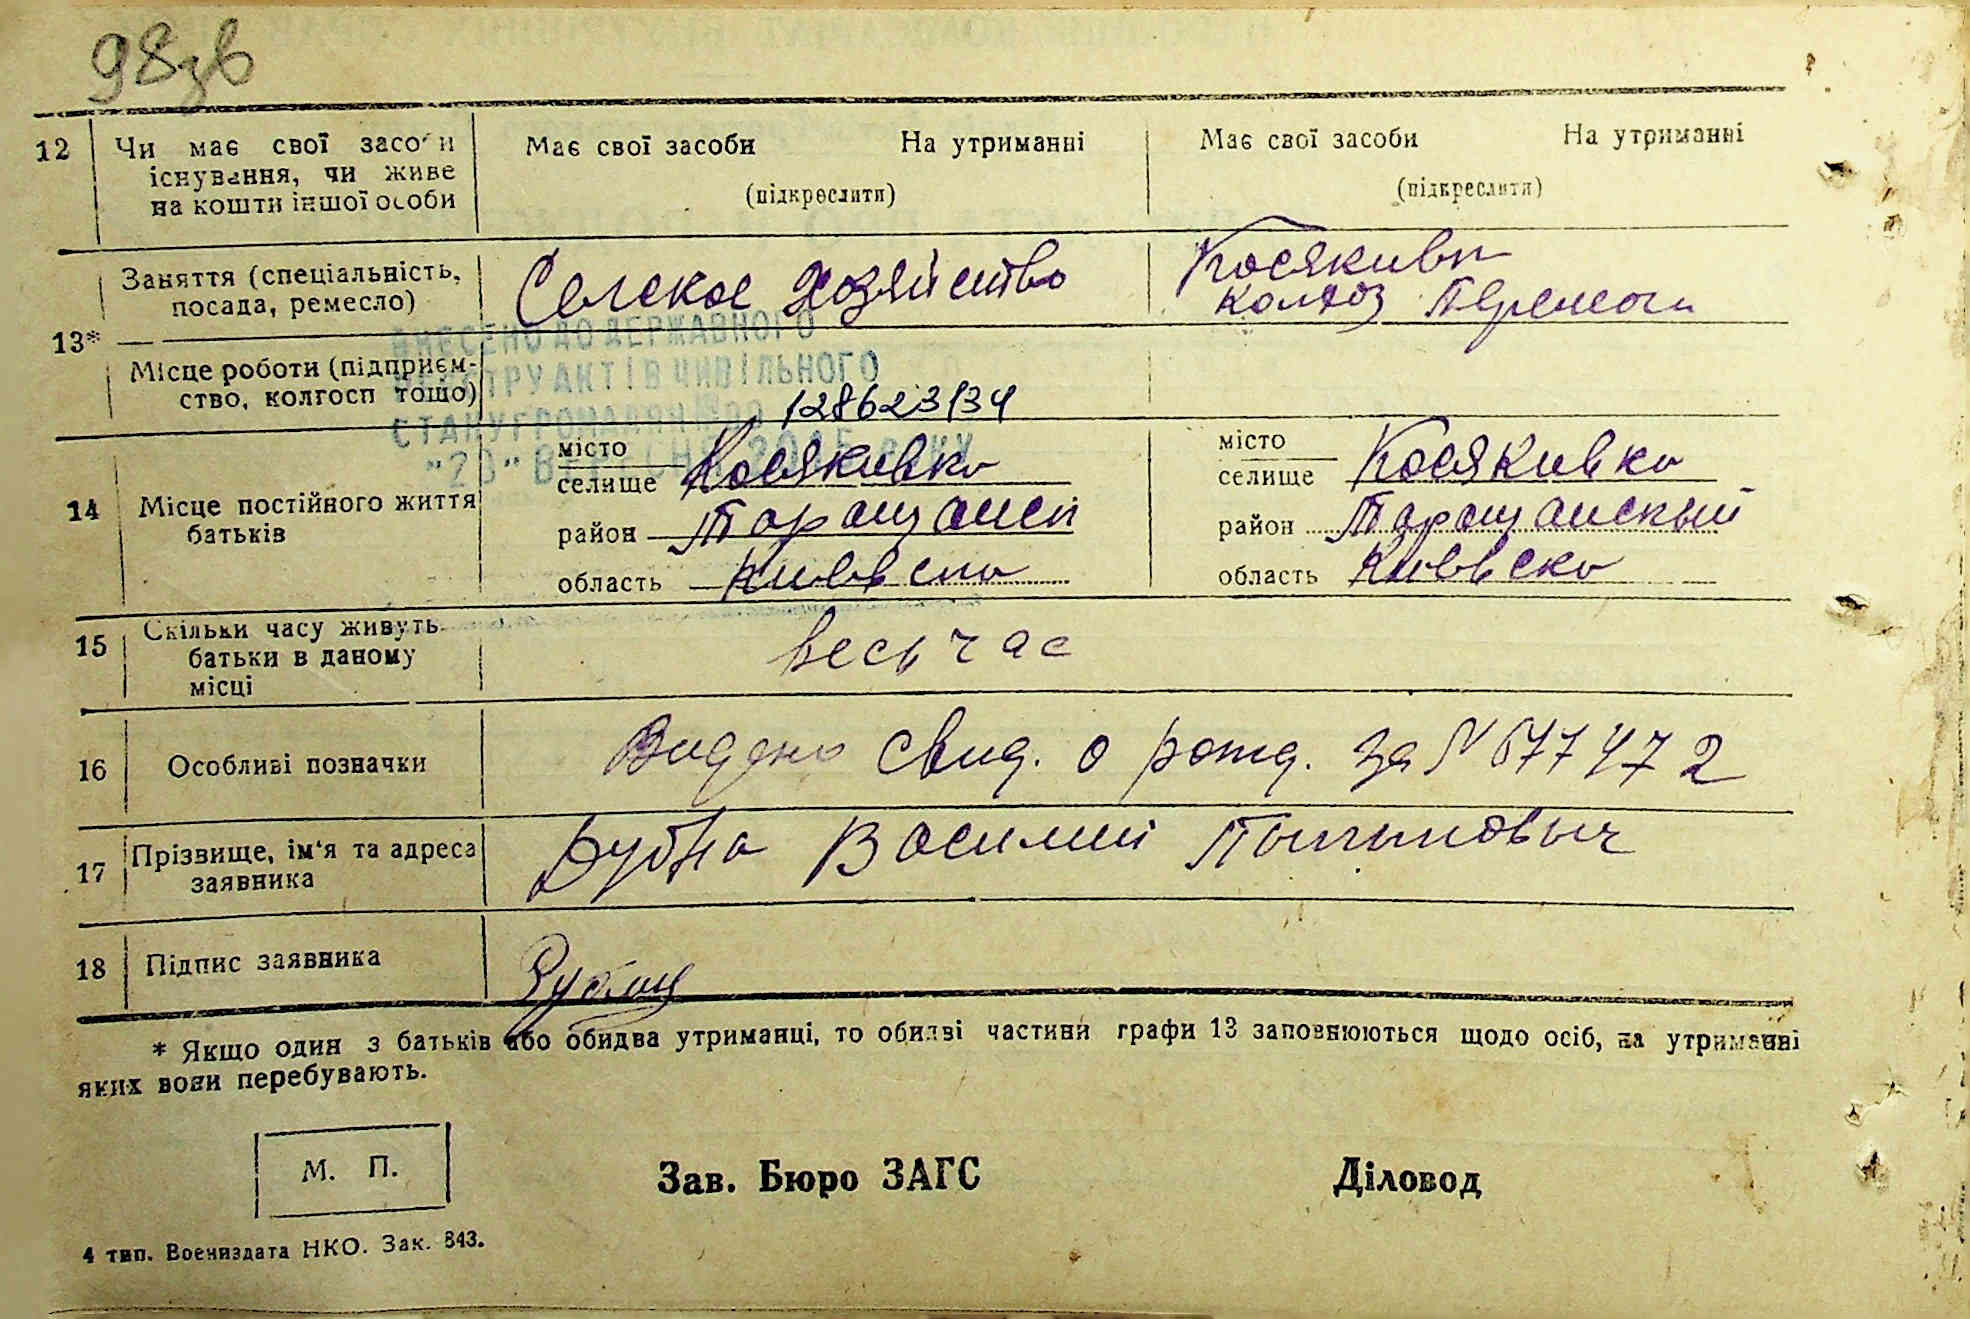 98зв
12 Чи має свої засоби Має свої засоби На утриманні Має свої засоби На утриманні
існування, чи живе (підкреслити) (підкреслити)
на кошти іншої особи
Заняття (спеціальність, Селское Хозяйство Косякивк
посада, ремесло) колхоз Перемога
13*
ВНЕСЕНО ДО ДЕРЖАВНОГО
Місце роботи (підприєм-
РЕЄСТРУ АКТІВ ЦИВІЛЬНОГО
ство, колгосп тощо) 128623134
СТАНУ ГРОМАДЯН
місто місто
селище Косякивка селище Косякивка
14 Місце постійного життя
батьків
район Таращанск район Таращанский
область Киевска область Киевска
15 Скільки часу живуть
батьки в даному весь час
місці
16 Особливі позначки Видено свид. о рожд. за N 677472
17 Прізвище, ім'я та адреса Василий
заявника
18 Підпис заявника
* Якщо один з батьків або обидва утриманці, то обидві частини графи 13 заповнюються щодо осіб, на утриманні
яких вони перебувають.
М. П. Зав. Бюро ЗАГС Діловод
4 тип. Воениздата НКО. Зак. 843.